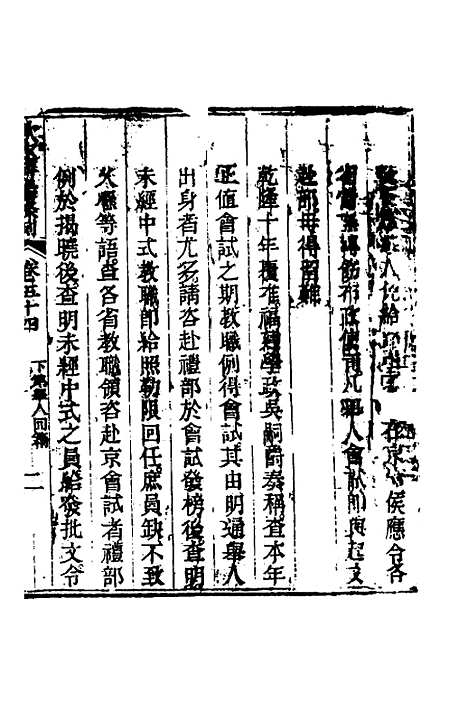 人給 在京 侯應令各
省督撫轉飭布政使司凡舉人會試即與起文
赴部毋得留難
乾隆十年覆准福建學政吳嗣爵奏稱查本年
正值會試之期教職例得會試其由明通舉人
出身者尤多請咨赴禮部於會試發榜後查明
未經中式教職即給照勒限回任庶員缺不致
久曠等語查各省教職領咨赴京會試者禮部
例於揭曉後查明未經中式之員給發批文令
卷五十四 下第舉人回籍 二